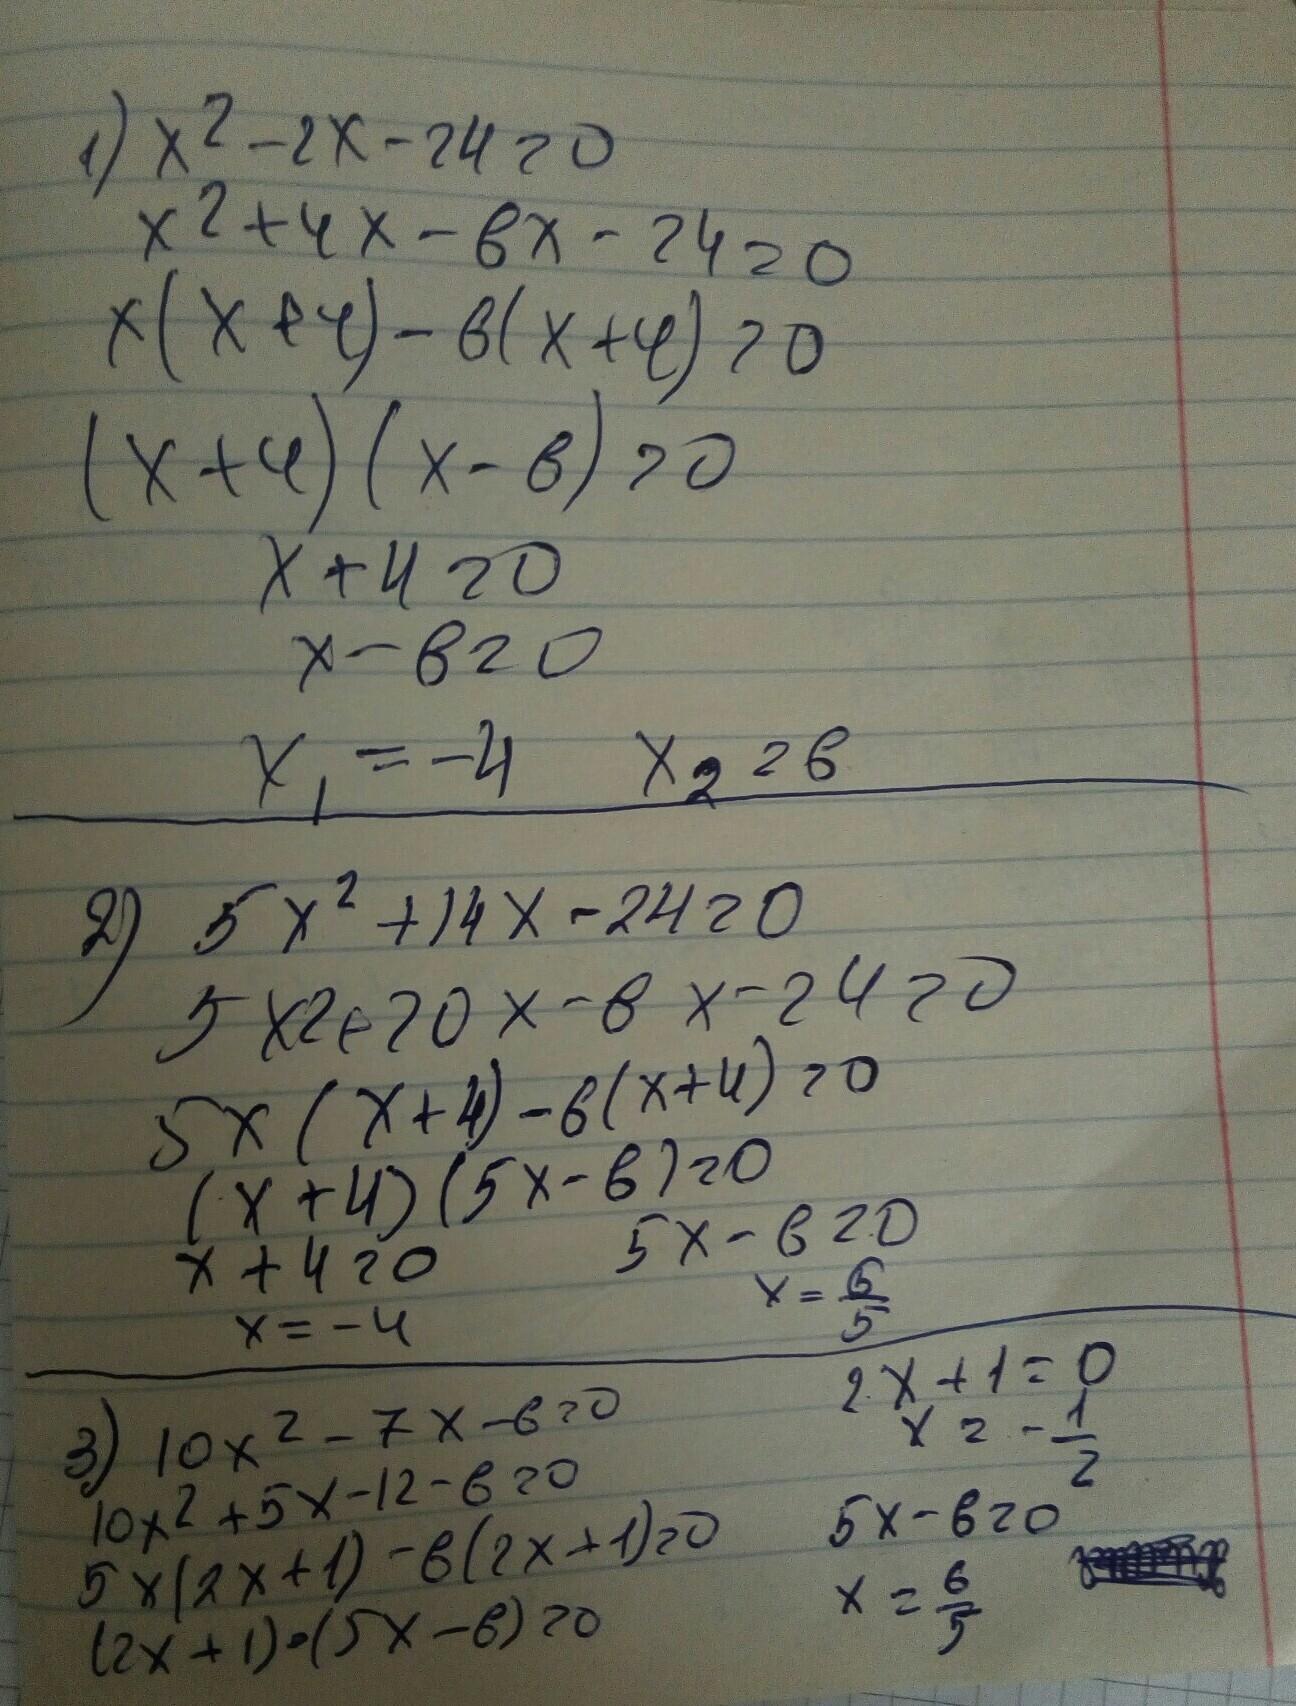 1) x² - 2x - 24 = 0
x² + 4x - 6x - 24 = 0
x(x + 4) - 6(x + 4) = 0
(x + 4)(x - 6) = 0
x + 4 = 0
x - 6 = 0
x₁ = -4 x₂ = 6
2) 5x² + 14x - 24 = 0
5x2 + 20x - 6x - 24 = 0
5x(x + 4) - 6(x + 4) = 0
(x + 4)(5x - 6) = 0
x + 4 = 0 5x - 6 = 0
x = -4 x = 6/5
3) 10x² - 7x - 6 = 0
10x² + 5x - 12 - 6 = 0
5x(2x + 1) - 6(2x + 1) = 0
(2x + 1)•(5x - 6) = 0
2x + 1 = 0
x = -1/2
5x - 6 = 0
x = 6/5